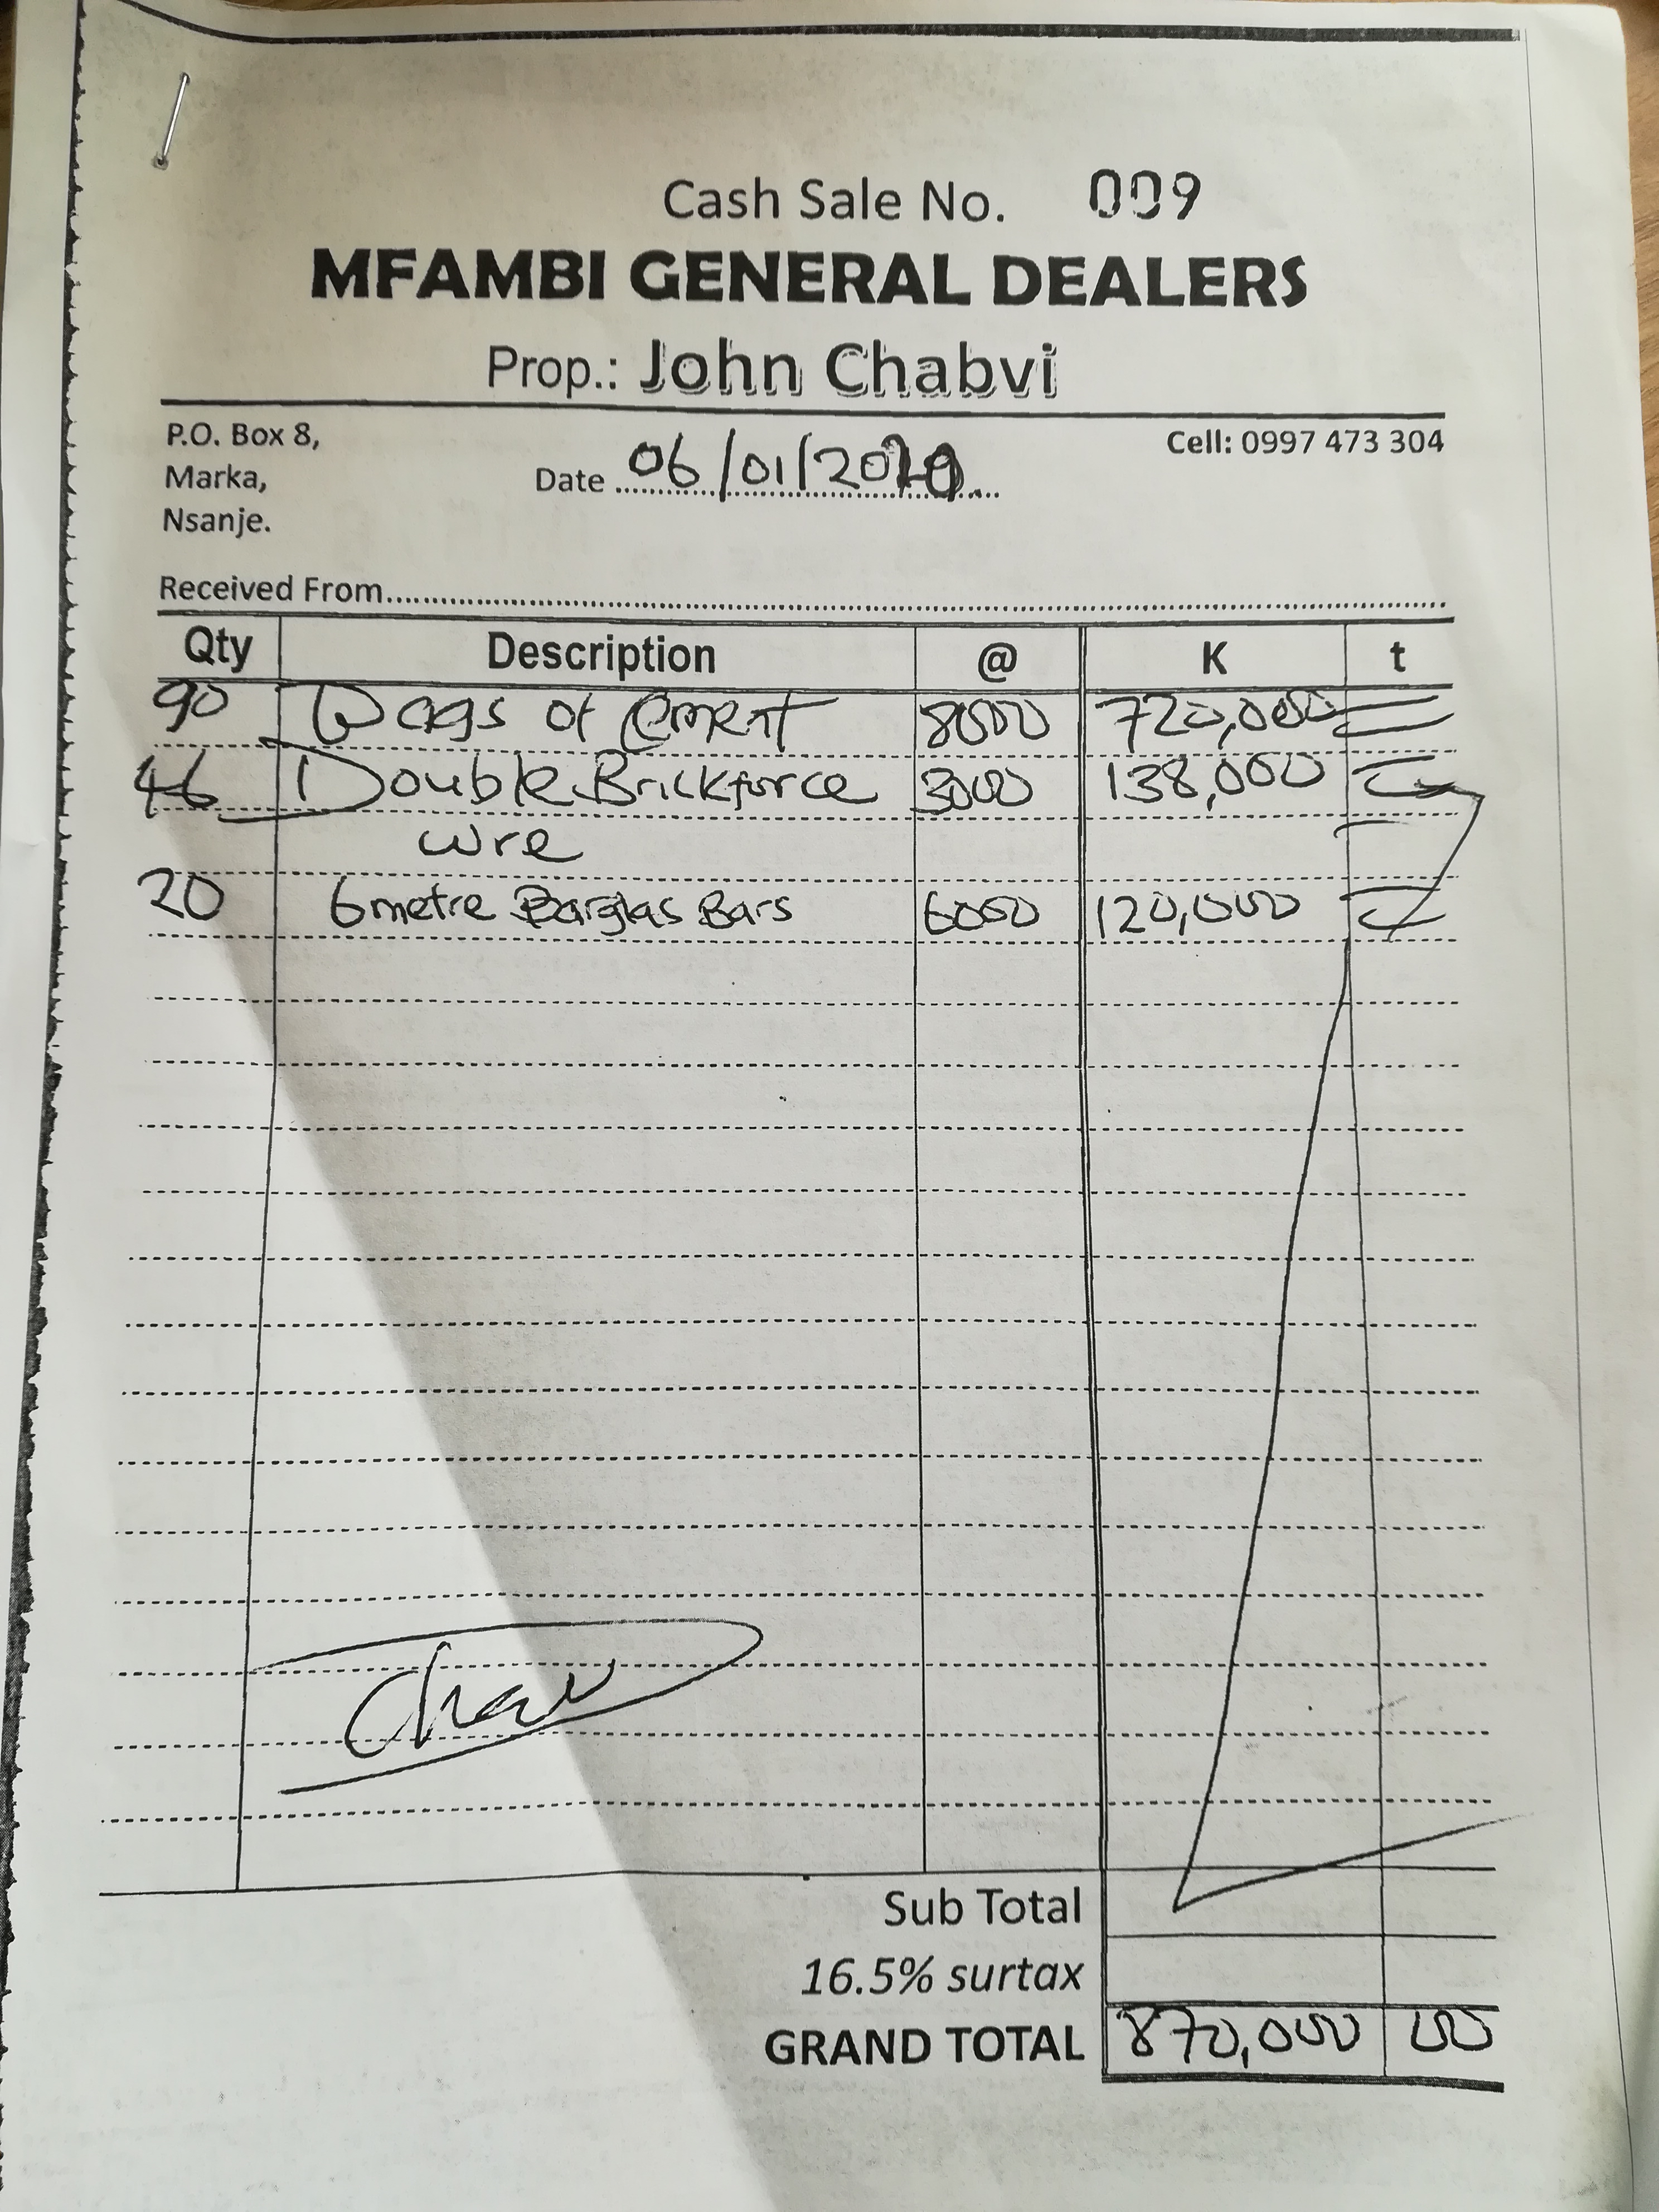 Cash Sale No. 009
MFAMBI GENERAL DEALERS
Prop.: John Chabvi
P.O. Box 8,
Marka,
Nsanje.
Date 06/01/2020
Cell: 0997 473 304
Received From
Qty Description @ K t
90 Bags of Cement 8000 720,000 =
46 Double Brickforce 3000 138,000
wre
20 6metre Barglas Bars 6000 120,000
Sub Total
16.5% surtax
GRAND TOTAL 870,000 00